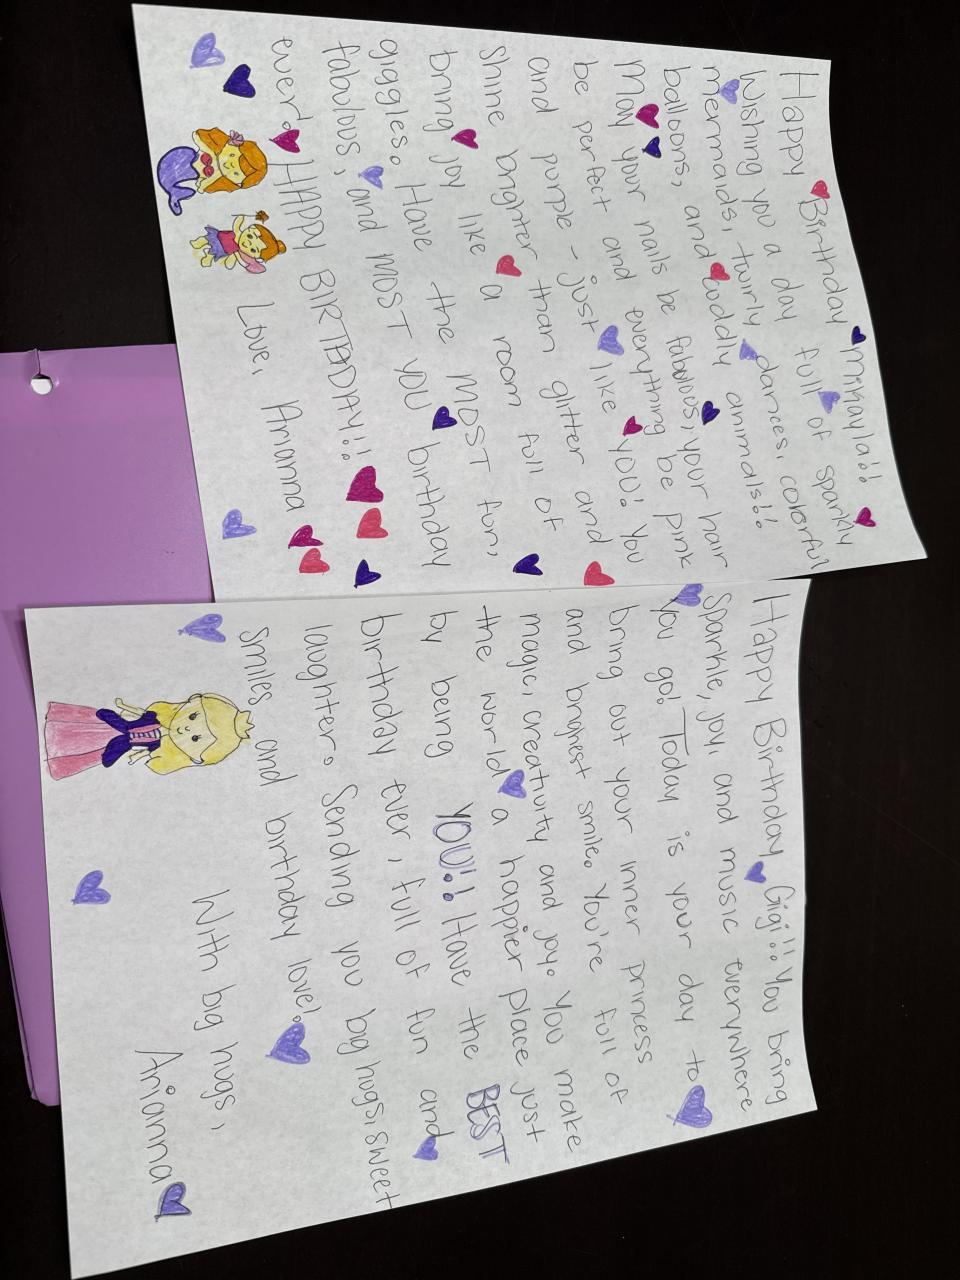 Happy Birthday Mikayla!!
Wishing you a day full of sparkly
mermaids, twirly dances, colorful
balloons, and cuddly animals!!
May your nails be fabulous, your hair
be perfect and everything be pink
and purple - just like YOU! You
shine brighter than glitter and
bring joy like a room full of
giggles. Have the MOST fun,
fabulous, and MOST YOU birthday
ever. HAPPY BIRTHDAY!!
Love, Arianna
Happy Birthday Gigi!! You bring
sparkle, joy, and music everywhere
you go! Today is your day to
bring out your inner princess
and brighest smile. You're full of
magic, creativity and joy. You make
the world a happier place just
by being YOU!! Have the BEST
birthday ever, full of fun and
laughter. Sending you big hugs, sweet
smiles and birthday love!
With big hugs,
Arianna